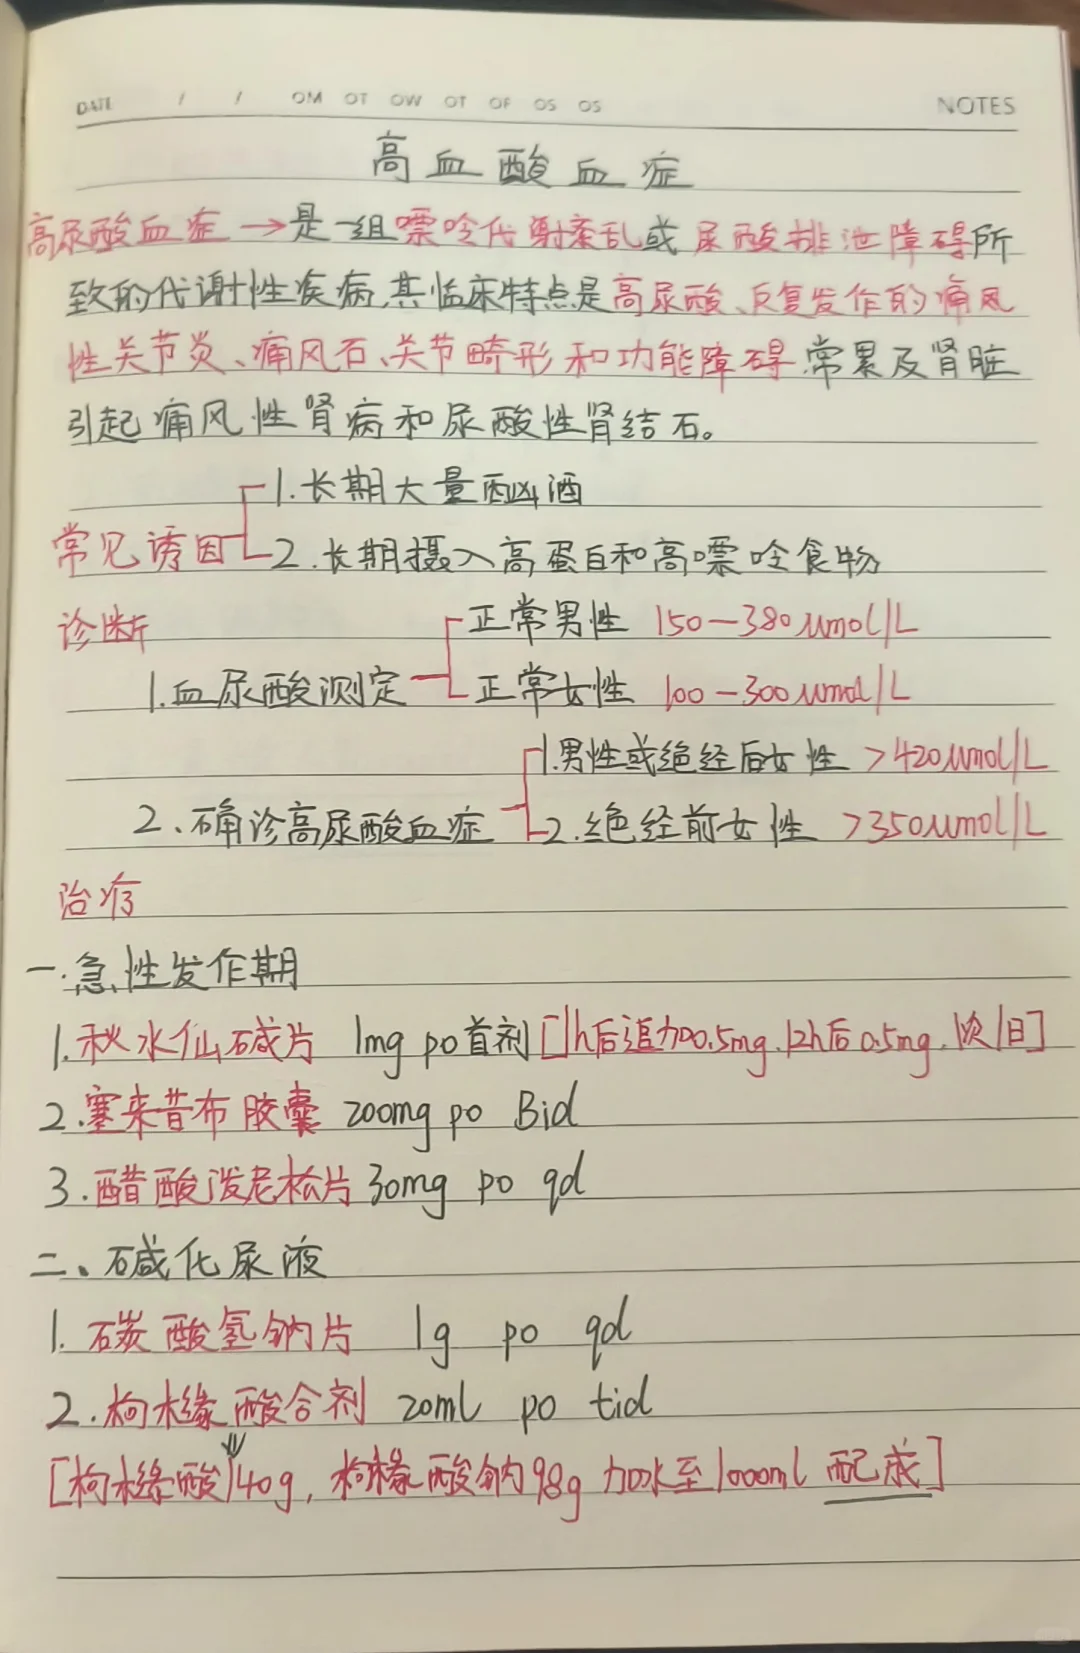 DATE / / OM OT OW OT OF OS OS NOTES
高血酸血症
高尿酸血症→是一组嘌呤代谢紊乱或尿酸排泄障碍所
致的代谢性疾病,其临床特点是高尿酸、反复发作的痛风
性关节炎、痛风石、关节畸形和功能障碍.常累及肾脏
引起痛风性肾病和尿酸性肾结石。
1.长期大量酗酒
常见诱因
2.长期摄入高蛋白和高嘌呤食物
诊断
正常男性 150—380μmol/L
1.血尿酸测定
正常女性 100—300μmol/L
1.男性或绝经后女性 >420μmol/L
2、确诊高尿酸血症
2.绝经前女性 >350μmol/L
治疗
一.急性发作期
1.秋水仙碱片 1mg po首剂[1h后追加0.5mg.12h后0.5mg.1次/日]
2.塞来昔布胶囊 200mg po Bid
3.醋酸泼尼松片 30mg po qd
二、碱化尿液
1.碳酸氢钠片 1g po qd
2.枸橼酸合剂 20ml po tid
[枸橼酸140g,枸橼酸钠98g加水至1000ml配成]